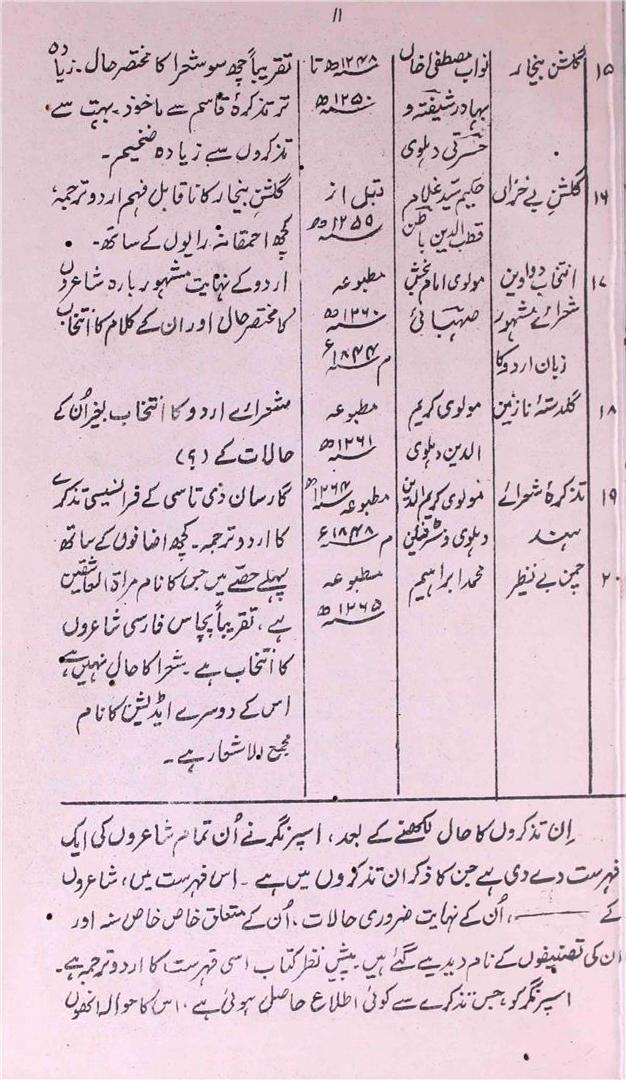 ۱۱
۱۵ گلشن بیخار نواب مصطفی خاں ۱۲۴۸ھ تا تقریباً چھ سو شعرا کا مختصر حال۔ زیادہ
بہادر شیفتہ و ۱۲۵۰ھ تر تذکرۂ قاسم سے ماخوذ۔ بہت سے
حسرتی دہلوی تذکروں سے زیادہ ضخیم۔
۱۶ گلشنِ بے خزاں حکیم سید غلام قبل از گلشنِ بیخار کا ناقابل فہم اردو ترجمہ،
قطب الدین باطن ۱۲۵۹ھ کچھ احمقانہ رایوں کے ساتھ۔
۱۷ انتخاب دواوین مولوی امام بخش مطبوعہ اردو کے نہایت مشہور بارہ شاعروں
شعرائے مشہور صہبائی ۱۲۶۰ھ کا مختصر حال اور ان کے کلام کا انتخاب
زبان اردو کا م ۱۸۴۴ء
۱۸ گلدستۂ نازنین مولوی کریم مطبوعہ شعرائے اردو کا انتخاب بغیر اُن کے
الدین دہلوی ۱۲۶۱ھ حالات کے (؟)
۱۹ تذکرۂ شعرائے مولوی کریم الدین مطبوعہ ۱۲۶۴ھ گارساں دی تاسی کے فرانسیسی تذکرے
ہند دہلوی و مسٹر فیلن م ۱۸۴۸ء کا اردو ترجمہ۔ کچھ اضافوں کے ساتھ
۲۰ چمن بے نظیر محمد ابراہیم مطبوعہ پہلے حصے میں جس کا نام مراۃ العاشقین
۱۲۶۵ھ ہے، تقریباً پچاس فارسی شاعروں
کا انتخاب ہے۔ شعرا کا حال نہیں ہے،
اس کے دوسرے ایڈیشن کا نام
مجمع الاشعار ہے۔
اِن تذکروں کا حال لکھنے کے بعد، اسپرنگر نے اُن تمام شاعروں کی ایک
فہرست دے دی ہے جن کا ذکر ان تذکروں میں ہے۔ اس فہرست میں، شاعروں
کے ——، اُن کے نہایت ضروری حالات، اُن کے متعلق خاص خاص سنہ اور
ان کی تصنیفوں کے نام دیدیے گئے ہیں۔ پیشِ نظر کتاب اسی فہرست کا اردو ترجمہ ہے۔
اسپرنگر کو، جس تذکرے سے کوئی اطلاع حاصل ہوئی ہے، اس کا حوالہ انھوں